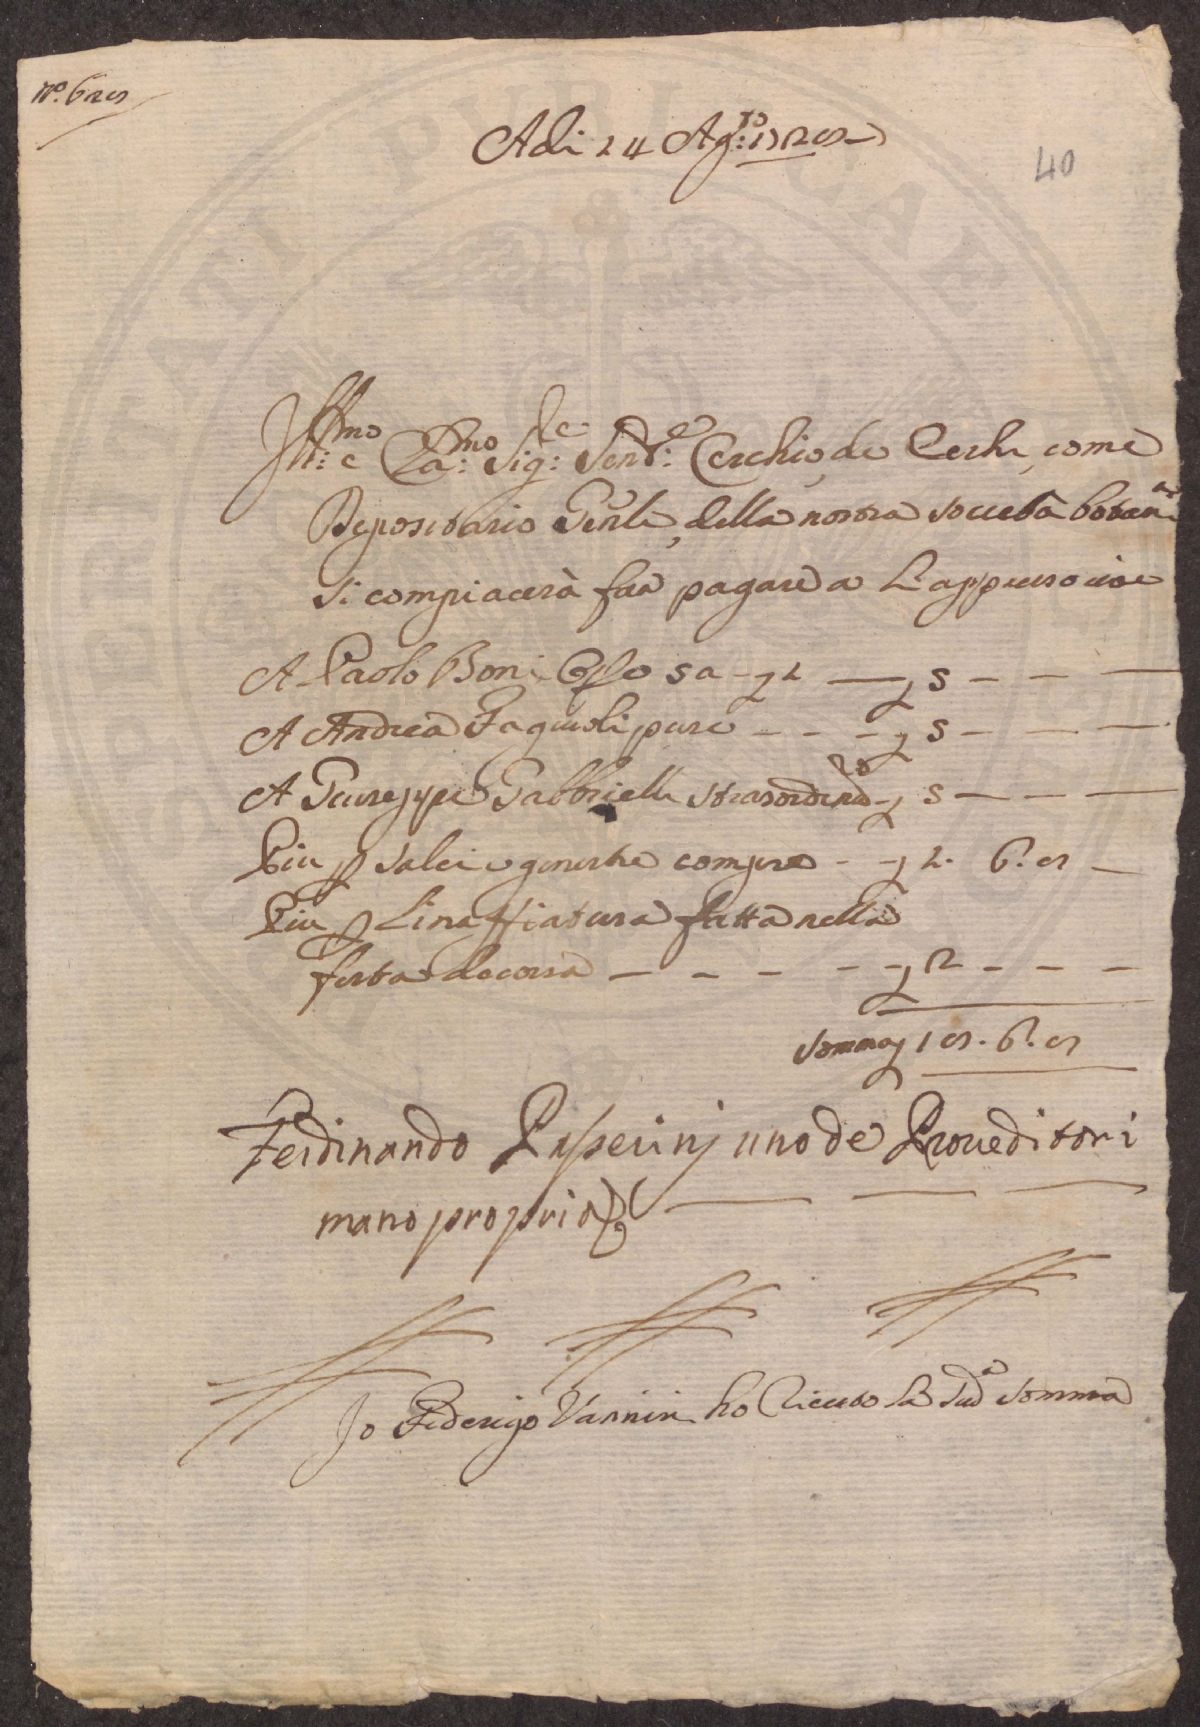 N.º 629
Adi 24 Ag:to 1729
40
Ill:mo e Cla:mo Sig:re Sen:re Cerchio de Cerchi, come
Depositario Gen'le, della nostra Società botan:ca
si compiacerà far pagare a L'appresso cioè
A Paolo Boni Op'e 5 a £ 1 — £ 5 – – —
A Andrea Fagiuoli pure – – – £ 5 – – —
A Giuseppe Gabbrielli straordin:rio £ 5 – – —
Piu p salci e ginestre compre – £ 2. 6. 8 —
Piu p Linaffiatura fatta nella
festa decorsa – – – – £ 2 – – –
Somma £ 19. 6. 8
Ferdinando Passerinj uno de Proueditori
mano propria
Io Federigo Vannini ho riceuto la sud:a somma